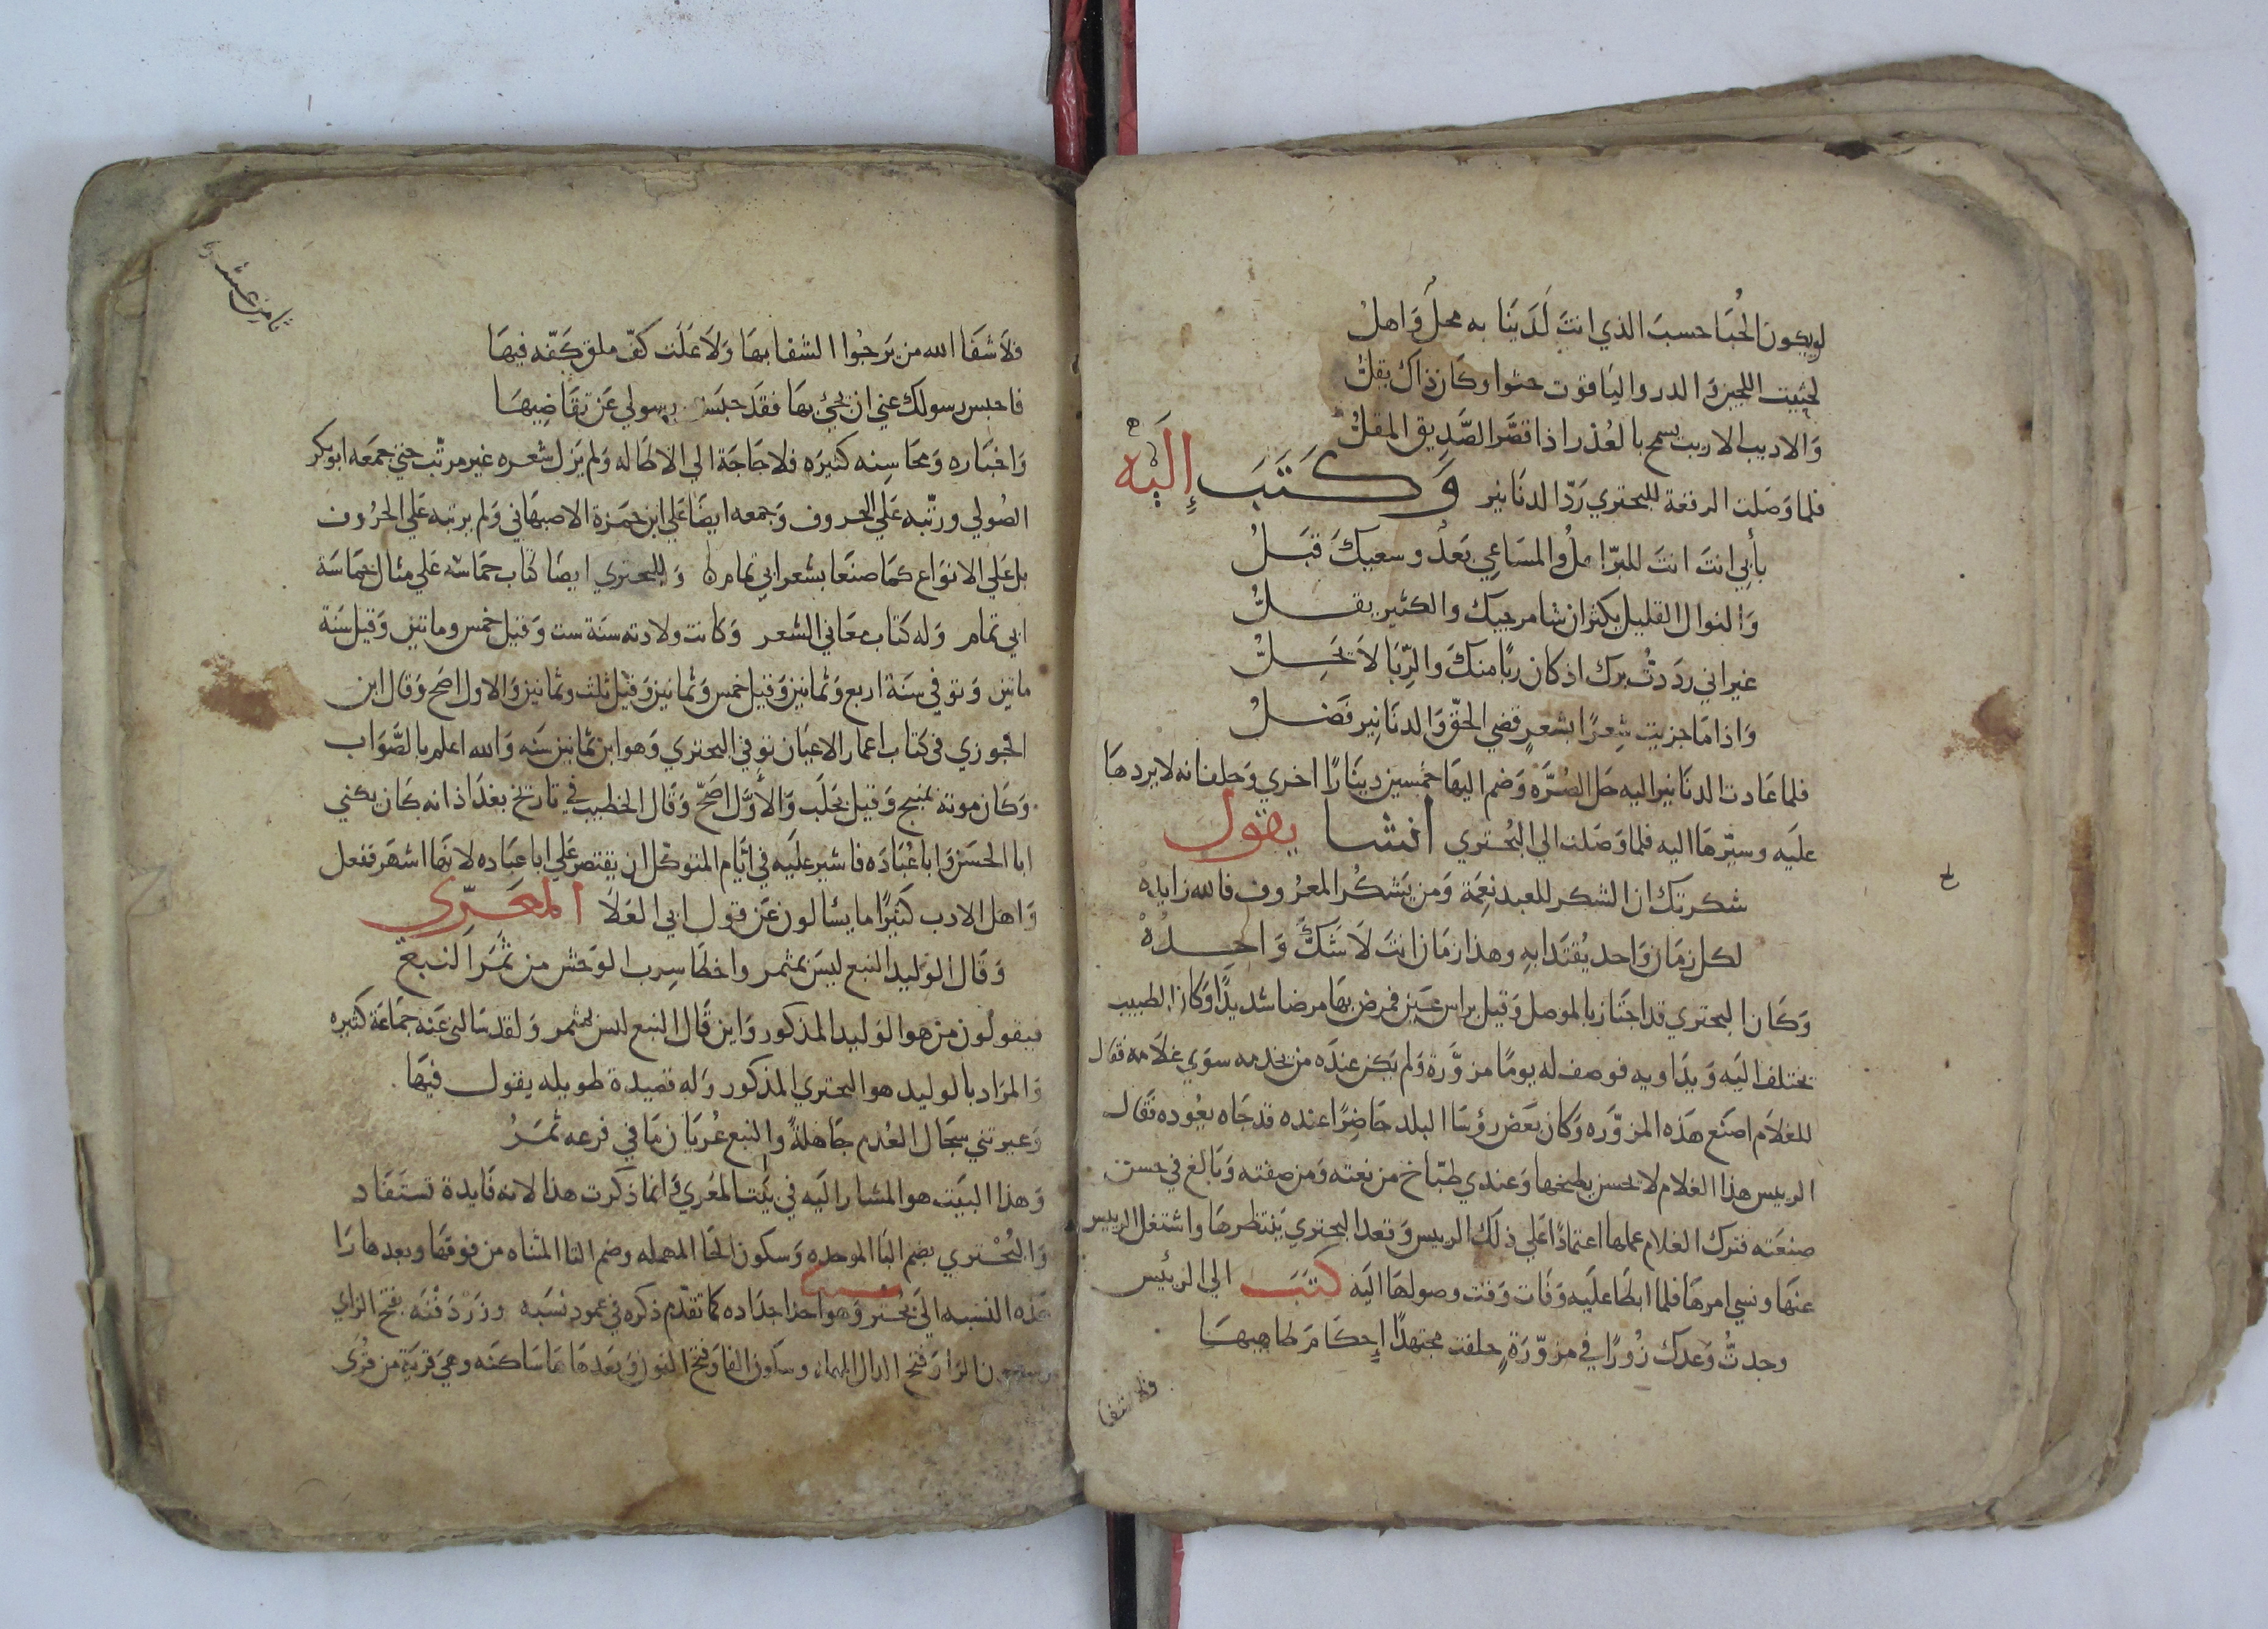 لو يكون الحُبَا حسبَ الذي انتَ لَدَينَا به محلٌ وَاهلُ
لحثيت اللجين وَالدر واليَاقوت حثوا وكَان ذاك يقلُّ
وَالاديب الاريب يسمح بالعُذر اذا قصَّر الصَّدِيق المقلُّ
فلما وَصَلت الرقعة للبحتري رَدّ الدنَانير وَكَتَبَ إِلَيْه
بأبي انتَ انتَ للبرّ اهلُ والمسَاعِي بَعدُ وسعيكَ قبَلُ
وَالنوال القليل يكثر ان شا مرجيك والكثير يقلُّ
غير اني ردَدتُ برك اذ كان ربًا منكَ والرِّبَا لاَ يَحِلُّ
وَاذا مَا جزيت شِعرًا بشعرٍ قضي الحقّ وَالدنَانِير فَضلُ
فلما عَادت الدنَانير اليه حَل الصُرَّه وَضم اليهَا خمسين دينَارًا اخري وَحلف انه لا يردهَا
علَيه وسيّرهَا اليه فلما وَصَلت الي البُحتري انشا يقول
شكرتك ان الشكر للعبد نِعمَة وَمن يَشكُر المعرُوف فالله زايدهْ
لكل زمَان وَاحد يُقتَدا بهِ وهذا زمَان انتَ لاَ شَكَّ وَاحِدُهْ
وَكَان البحتري قد اجتَاز بالموصل وَقيل براس عَين فمرض بهَا مرضا شديدًا وَكَان الطبيب
يختلف اليَه وَيدَاويه فوصف له يومًا مزوَّرة وَلم يَكن عندَه من يخدمه سوَي غلاَمه فقال
للغلاَم اصنَع هَذه المزوّرَه وَكان بَعَض رؤسَا البلد حَاضِرًا عنده قد جَاه يعُوده فقَال
الرييس هذا الغلام لا يحسن يطبخها وَعندي طبّاخ من نعته وَمن صفته وَبَالغ في حسن
صنعَته فترك الغلام عملها اعتمادًا عَلي ذلك الرييس وَقعد البحتري يَنتظرهَا واشتغل الرييس
عنهَا ونسي امرهَا فلما ابطَا علَيه وَفَات وَقت وصولهَا اليَه كتَبَ الي الرئيس
وجدتُّ وَعدك زُورًا في مزوّرَةٍ حلفت مجتهدًا إِحكَامَ طاهِيهَا
فلا شفا
ثامن عشر
فلاَ شفَا الله من يَرجُوا الشفا بهَا وَلاَ عَلَت كفّ ملق كَفّه فيهَا
فاحبس رسولك عني ان يجئ بهَا فقَد حبَست رسولي عَن تقَاضِيهَا
وَاخبَاره وَمحَاسِنه كثيرَه فلا حَاجَة الي الاطَاله وَلم يَزل شعره غير مرتّب حتي جمَعَه ابو بكر
الصُولي ورتّبه عَلي الحروف وَجمعه ايضًا عَلي ابن حَمزَة الاصبهَاني وَلم يرتبه عَلي الحرُوف
بل عَلي الانوَاع كمَا صنَعَا بشعر ابي تمام وَللبحتري ايضًا كتَاب حمَاسه عَلي مثال حمَاسَة
ابي تمام وَله كتَاب معَاني الشعر وَكانت ولادته سنَة ست وَقيل خمس وماتين وَقيل سَنة
ماتين وَتوفي سنَة اربع وَثمانين وَقيل خمس وَثمانين وَقيل ثلث وثمانين وَالاول اصَح وَقال ابن
الجوزي في كتاب اعمار الاعيَان توفي البحتري وَهو ابن ثمانين سنَه وَالله اعلم بالصَّوَاب
وَكَان موته بمنبج وَقيل بحَلَب وَالأوَّل اصَحّ وَقَال الخطيب في تاريخ بغدَاذ انه كَان يكني
ابا الحسَن وَابا عُبَادَه فاشير علَيه في ايَّام المتوكل ان يقتصر عَلي ابا عبَاده لانهَا اشهَر ففعل
وَاهل الادب كثيرًا ما يسَالون عَن قول ابي العَلاَ المَعَرِّي
وَقَال الوَليد النبع ليسَ بمثمر واخطَا سِرب الوَحش من ثَمر النبع
فيقولُون من هو الوَليد المذكور وَاين قَال النبع ليس بمثمر وَلقد سَالني عَنه جمَاعَة كثيره
وَالمرَاد بالوليد هو البحتري المذكور وَله قصيدة طويله يقول فيهَا
وَعيرتني سجَال العُدم جَاهلةً والنبع عُريَان مَا في فرعه ثمَرُ
وَهذا البيَت هو المشار اليَه في بَيت المعَري وَانما ذكرت هذا لانه فَايدة تستَفَاد
وَالبُحْتري بضم البَا الموحده وَسكون الحَا المهمله وضم التا المثناه من فوقهَا وبعدهَا رَا
هَذه النسبه الَي بُحتُر وَهو احد اجدَاده كما تقدّم ذكره في عمود نسَبه وزَرَدَفنَه بفتح الزاي
وسكون الرَا وَفتح الدال المهمله وسكون الفا وَفتح النون وَبَعدهَا هَا سَاكنَه وَهيَ قَريَة من قرَي